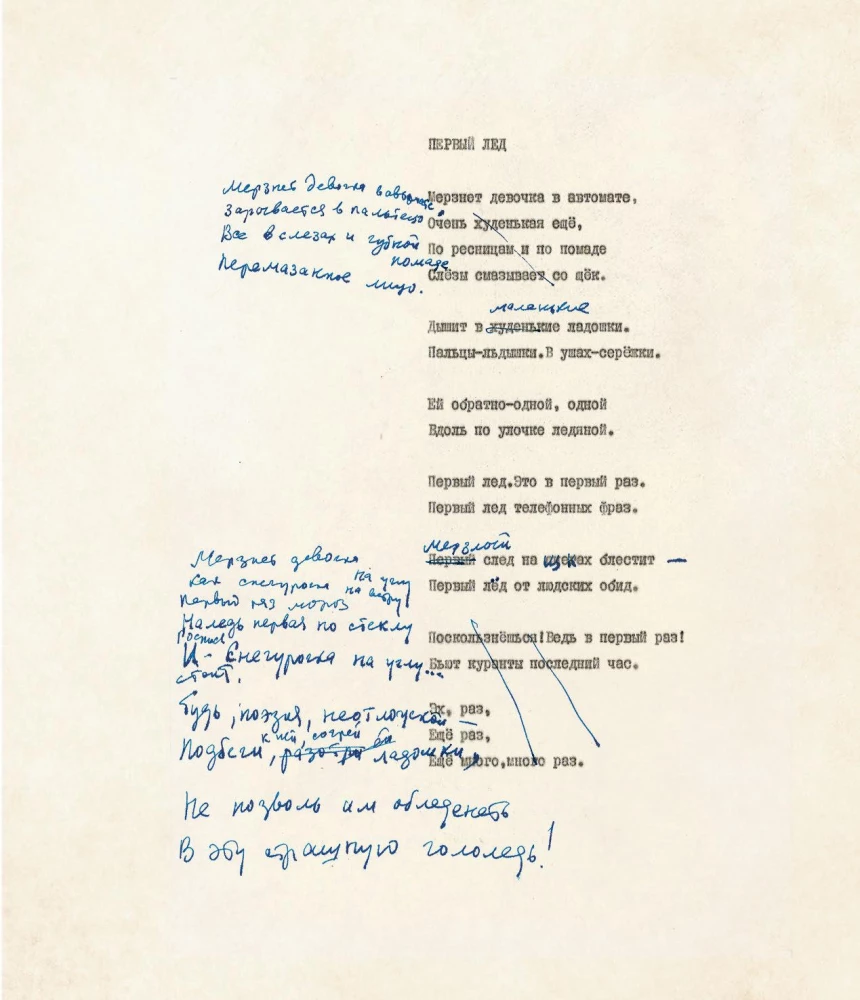 ПЕРВЫЙ ЛЕД
Мерзнет девочка в автомате,
зарывается в пальтецо
Все в слезах и губной
помаде
Перемазанное лицо.
Мерзнет девочка в автомате,
Очень худенькая ещё,
По ресницам и по помаде
Слёзы смазывает со щёк.
маленькие
Дышит в худенькие ладошки.
Пальцы-льдышки.В ушах-серёжки.
Ей обратно-одной, одной
Вдоль по улочке ледяной.
Первый лед.Это в первый раз.
Первый лед телефонных фраз.
мерзлый
Первый след на щеках блестит —
Первый лёд от людских обид.
Поскользнёшься!Ведь в первый раз!
Бьют куранты последний час.
Эх, раз,
Ещё раз,
Ещё много,много раз.
Мерзнет девочка
как снегурочка на углу
на ветру
Первый раз мороз
Наледь первая по стеклу
И - Снегурочка на углу...
стоит.
Будь, поэзия, неотлучкой —
к ней, согрей
Подбеги, разотри ладошки,
Не позволь им обледенеть
В эту страшную гололедь!